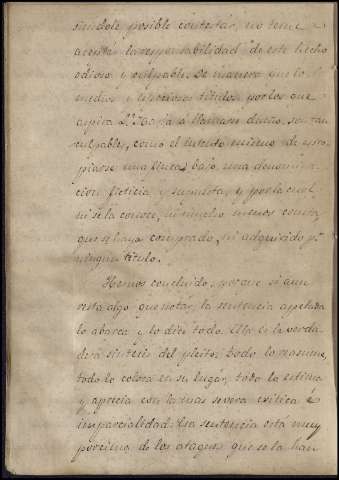 siendole posible contestar, no teme
acertar la responsabilidad de este hecho
odioso y culpable. De manera que los
medios y especiosos titulos por los que
aspira Dn. á llamarse dueño, son tan
culpables, como el intento mismo de apro
piarse una finca bajo una denomina
cion ficticia y supuesta, y por la cual
ni se la conoce, ni mucho menos consta
que se haya comprado, ni adquirido pr.
ningun titulo.
Hemos concluido, porque si aun
resta algo que notar, la sentencia apelada
lo abarca y lo dice todo. Ella es la verda
dera sintesis del pleito: todo lo resume,
todo lo coloca en su lugar, todo lo estima
y aprecia con la mas severa critica é
imparcialidad. Esa sentencia está muy
por cima de los ataques que se la han